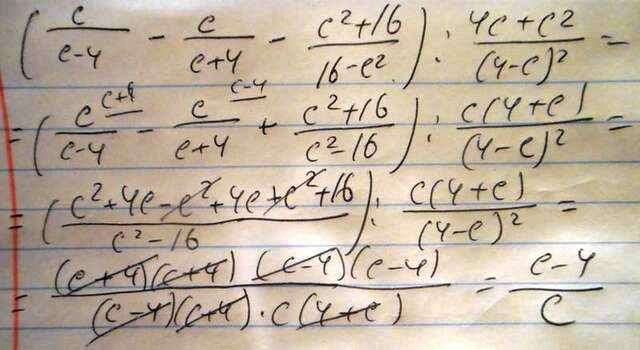 ( c/(c-4) - c/(c+4) - (c²+16)/(16-c²) ) : (4c+c²)/(4-c)² =
= ( c^(c+4)/(c-4) - c^(c-4)/(c+4) + (c²+16)/(c²-16) ) : c(4+c)/(4-c)² =
= ( (c²+4c-c²+4c+c²+16)/(c²-16) ) : c(4+c)/(4-c)² =
= (c+4)(c+4) (c-4)(c-4)/((c-4)(c+4)·c(4+c)) = (c-4)/c